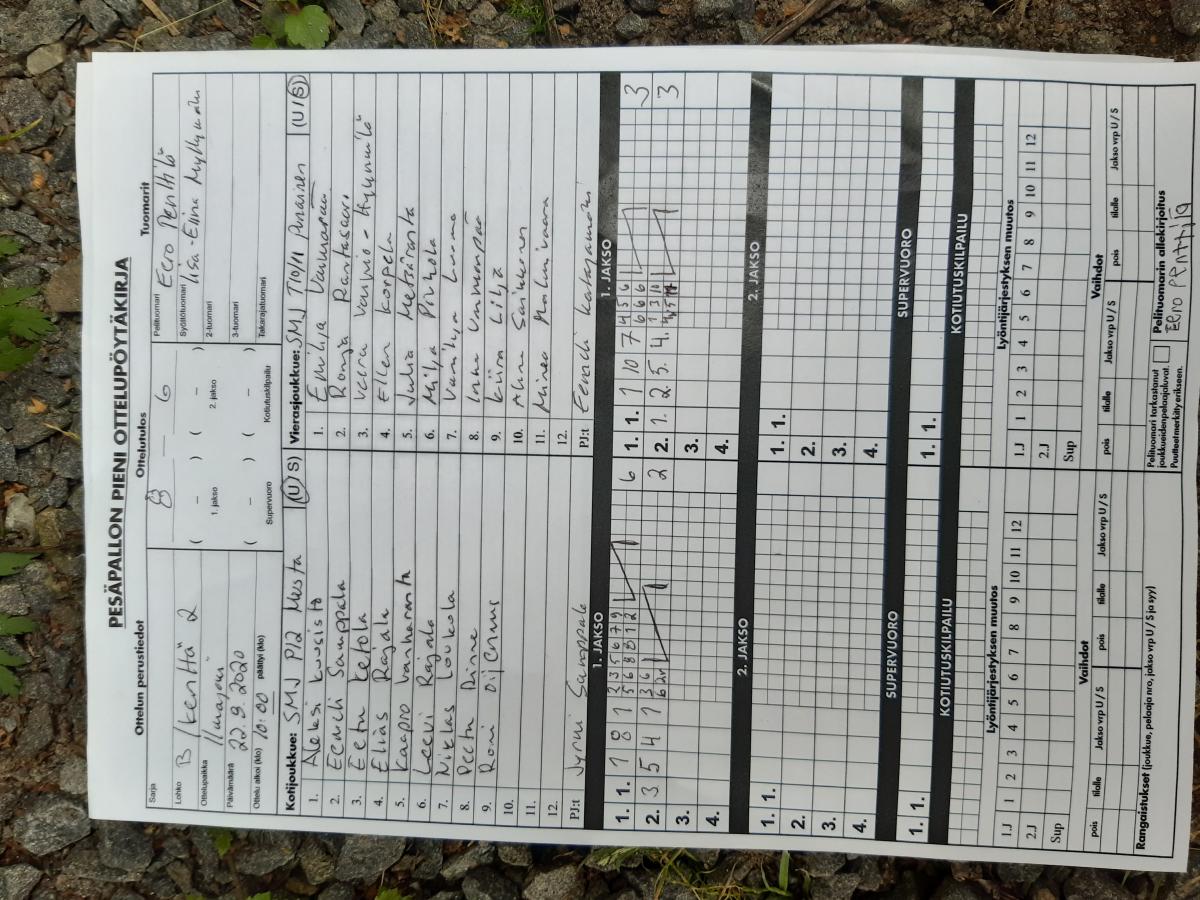 PESÄPALLON PIENI OTTELUPÖYTÄKIRJA
Ottelun perustiedot
Ottelutulos
Tuomarit
Sarja
Lohko B / kenttä 2
Ottelupaikka Ilmajoki
Päivämäärä 22.9.2020
Ottelu alkoi (klo) 10:00 päättyi (klo)
8 – 6
( – ) ( – )
1. jakso 2. jakso
( – ) ( – )
Supervuoro Kotiutuskilpailu
Pelituomari Eero Penttilä
Syöttötuomari Iisa-Elina Myllymäki
2-tuomari
3-tuomari
Takarajatuomari
Kotijoukkue: SMJ P12 Musta (U/S)
1. Aleksi Kuusisto
2. Eemeli Samppala
3. Eetu Ketola
4. Elias Rajala
5. Kaapro Vanharanta
6. Leevi Rajala
7. Niklas Loukola
8. Peetu Rinne
9. Roni
10.
11.
12.
PJ:t Jyrmi Samppala
Vierasjoukkue: SMJ T10/11 Punainen (U/S)
1. Emilia
2. Ronja Rantasaari
3. Veera Vainio-Hyynnilä
4. Ellen Korpela
5. Julia Metsäranta
6. Milja Pirhola
7. Vanilja Luoma
8. Inka
9. Kiira Lilja
10. Aino Saikkonen
11. Minea
12.
PJ:t Eemeli Katajamäki
1. JAKSO
1. JAKSO
1. 1. 1 8 1 6
2. 3 5 4 1 2
3.
4.
1. 1. 1 10 7 3
2. 1. 2. 3. 4. 3
3.
4.
2. JAKSO
2. JAKSO
1. 1.
2.
3.
4.
1. 1.
2.
3.
4.
SUPERVUORO
SUPERVUORO
1. 1.
1. 1.
KOTIUTUSKILPAILU
KOTIUTUSKILPAILU
Lyöntijärjestyksen muutos
Lyöntijärjestyksen muutos
1.J 1 2 3 4 5 6 7 8 9 10 11 12
2.J
Sup
1.J 1 2 3 4 5 6 7 8 9 10 11 12
2.J
Sup
Vaihdot
Vaihdot
pois tilalle Jakso vrp U / S pois tilalle Jakso vrp U / S
pois tilalle Jakso vrp U / S pois tilalle Jakso vrp U / S
Rangaistukset (joukkue, pelaaja nro, jakso vrp U / S ja syy)
Pelituomari tarkastanut
joukkueiden pelaajaluvat.
Puutteet merkitty erikseen.
Pelituomarin allekirjoitus
EERO PENTTILÄ